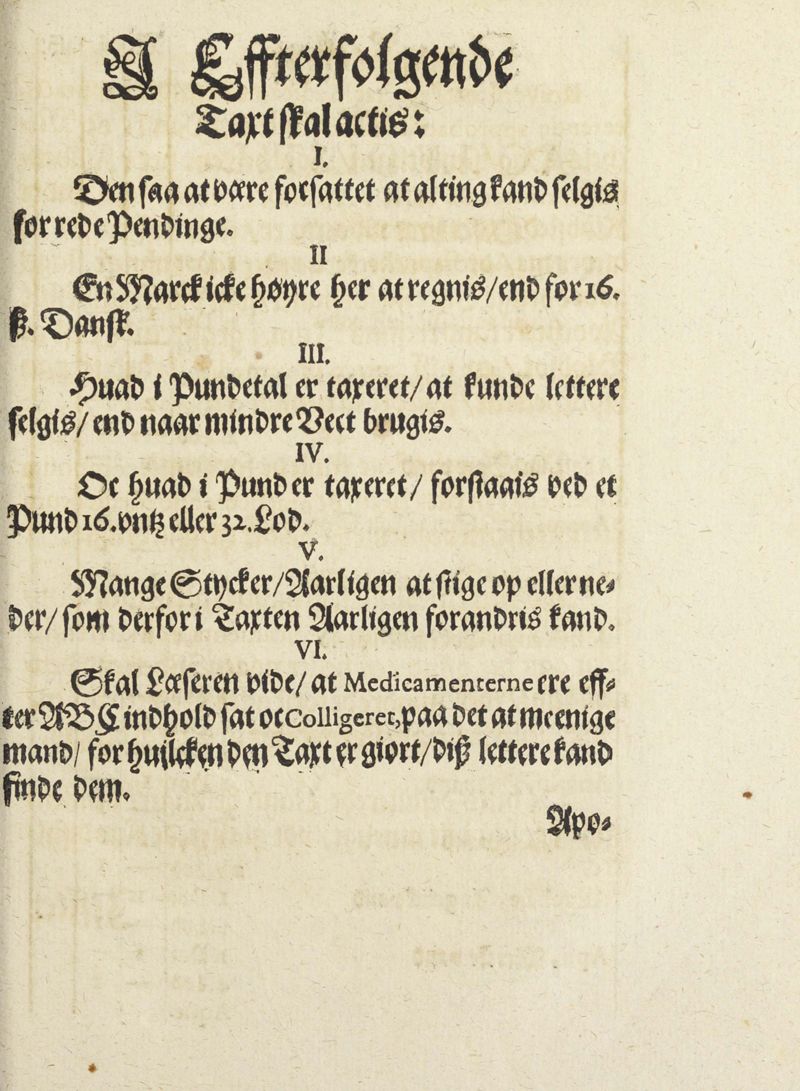 I Effterfolgende
Taxt skal actis:
I.
Den saa at være forfattet at alting kand selgis
for rede Pendinge.
II
En Marck icke høyre her at regnis/end for 16.
ß. Dansk.
III.
Huad i Pundetal er taxeret/at kunde lettere
selgis/end naar mindre Vect brugis.
IV.
Oc huad i Pund er taxeret/ forstaais ved et
Pund 16.vntz eller 32.Lod.
V.
Mange Stycker/Aarligen at stige op eller ne⸗
der/som derfor i Taxten Aarligen forandris kand.
VI.
Skal Læseren vide/at Medicamenterne ere eff⸗
ter ABC indhold sat oc Colligeret, paa det at meenige
mand/ for huilcken den Taxt er giort/diß lettere kand
finde dem.
Apo⸗